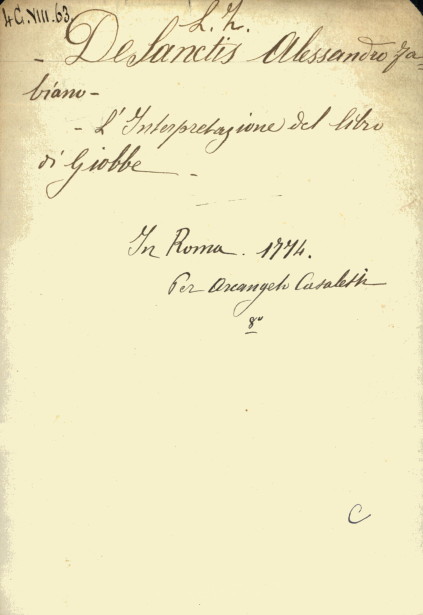 4 C. VIII. 63.
L. Z.
- De Sanctis Alessandro Fa=
biano -
- L'Interpretazione del libro
di Giobbe -
In Roma. 1774.
Per Arcangelo Casaletti
8°
C